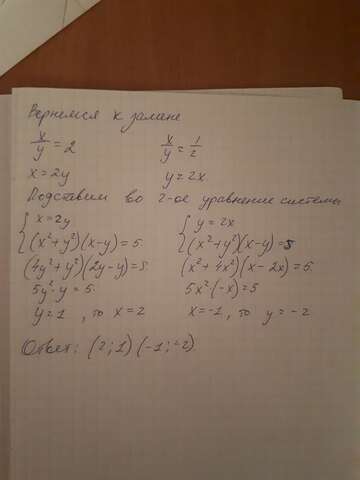 Вернемся к замене
x/y = 2 x/y = 1/2
x = 2y y = 2x
Подставим во 2-ое уравнение системы
{ x = 2y { y = 2x
(x²+y²)(x-y) = 5 (x²+y²)(x-y) = 5
(4y²+y²)(2y-y) = 5 (x²+4x²)(x-2x) = 5
5y²·y = 5 5x²·(-x) = 5
y = 1 , то x = 2 x = -1 , то y = -2
Ответ: (2;1) (-1;-2)